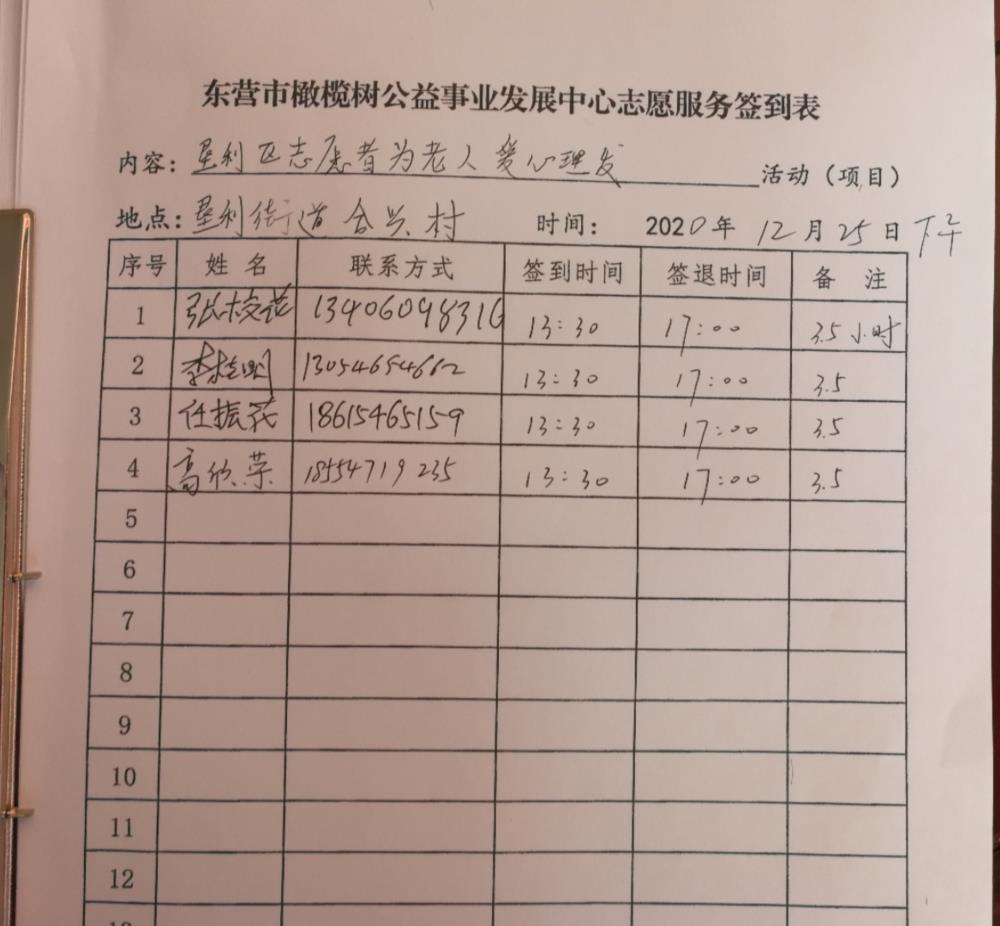 东营市橄榄树公益事业发展中心志愿服务签到表
内容：垦利区志愿者为老人爱心理发 活动（项目）
地点：垦利街道合兴村 时间： 2020年12月25日下午
序号 姓名 联系方式 签到时间 签退时间 备注
1 张校花 13406098316 13:30 17:00 3.5小时
2 13054654662 13:30 17:00 3.5
3 任振花 18615465159 13:30 17:00 3.5
4 高欣荣 18554719235 13:30 17:00 3.5
5
6
7
8
9
10
11
12